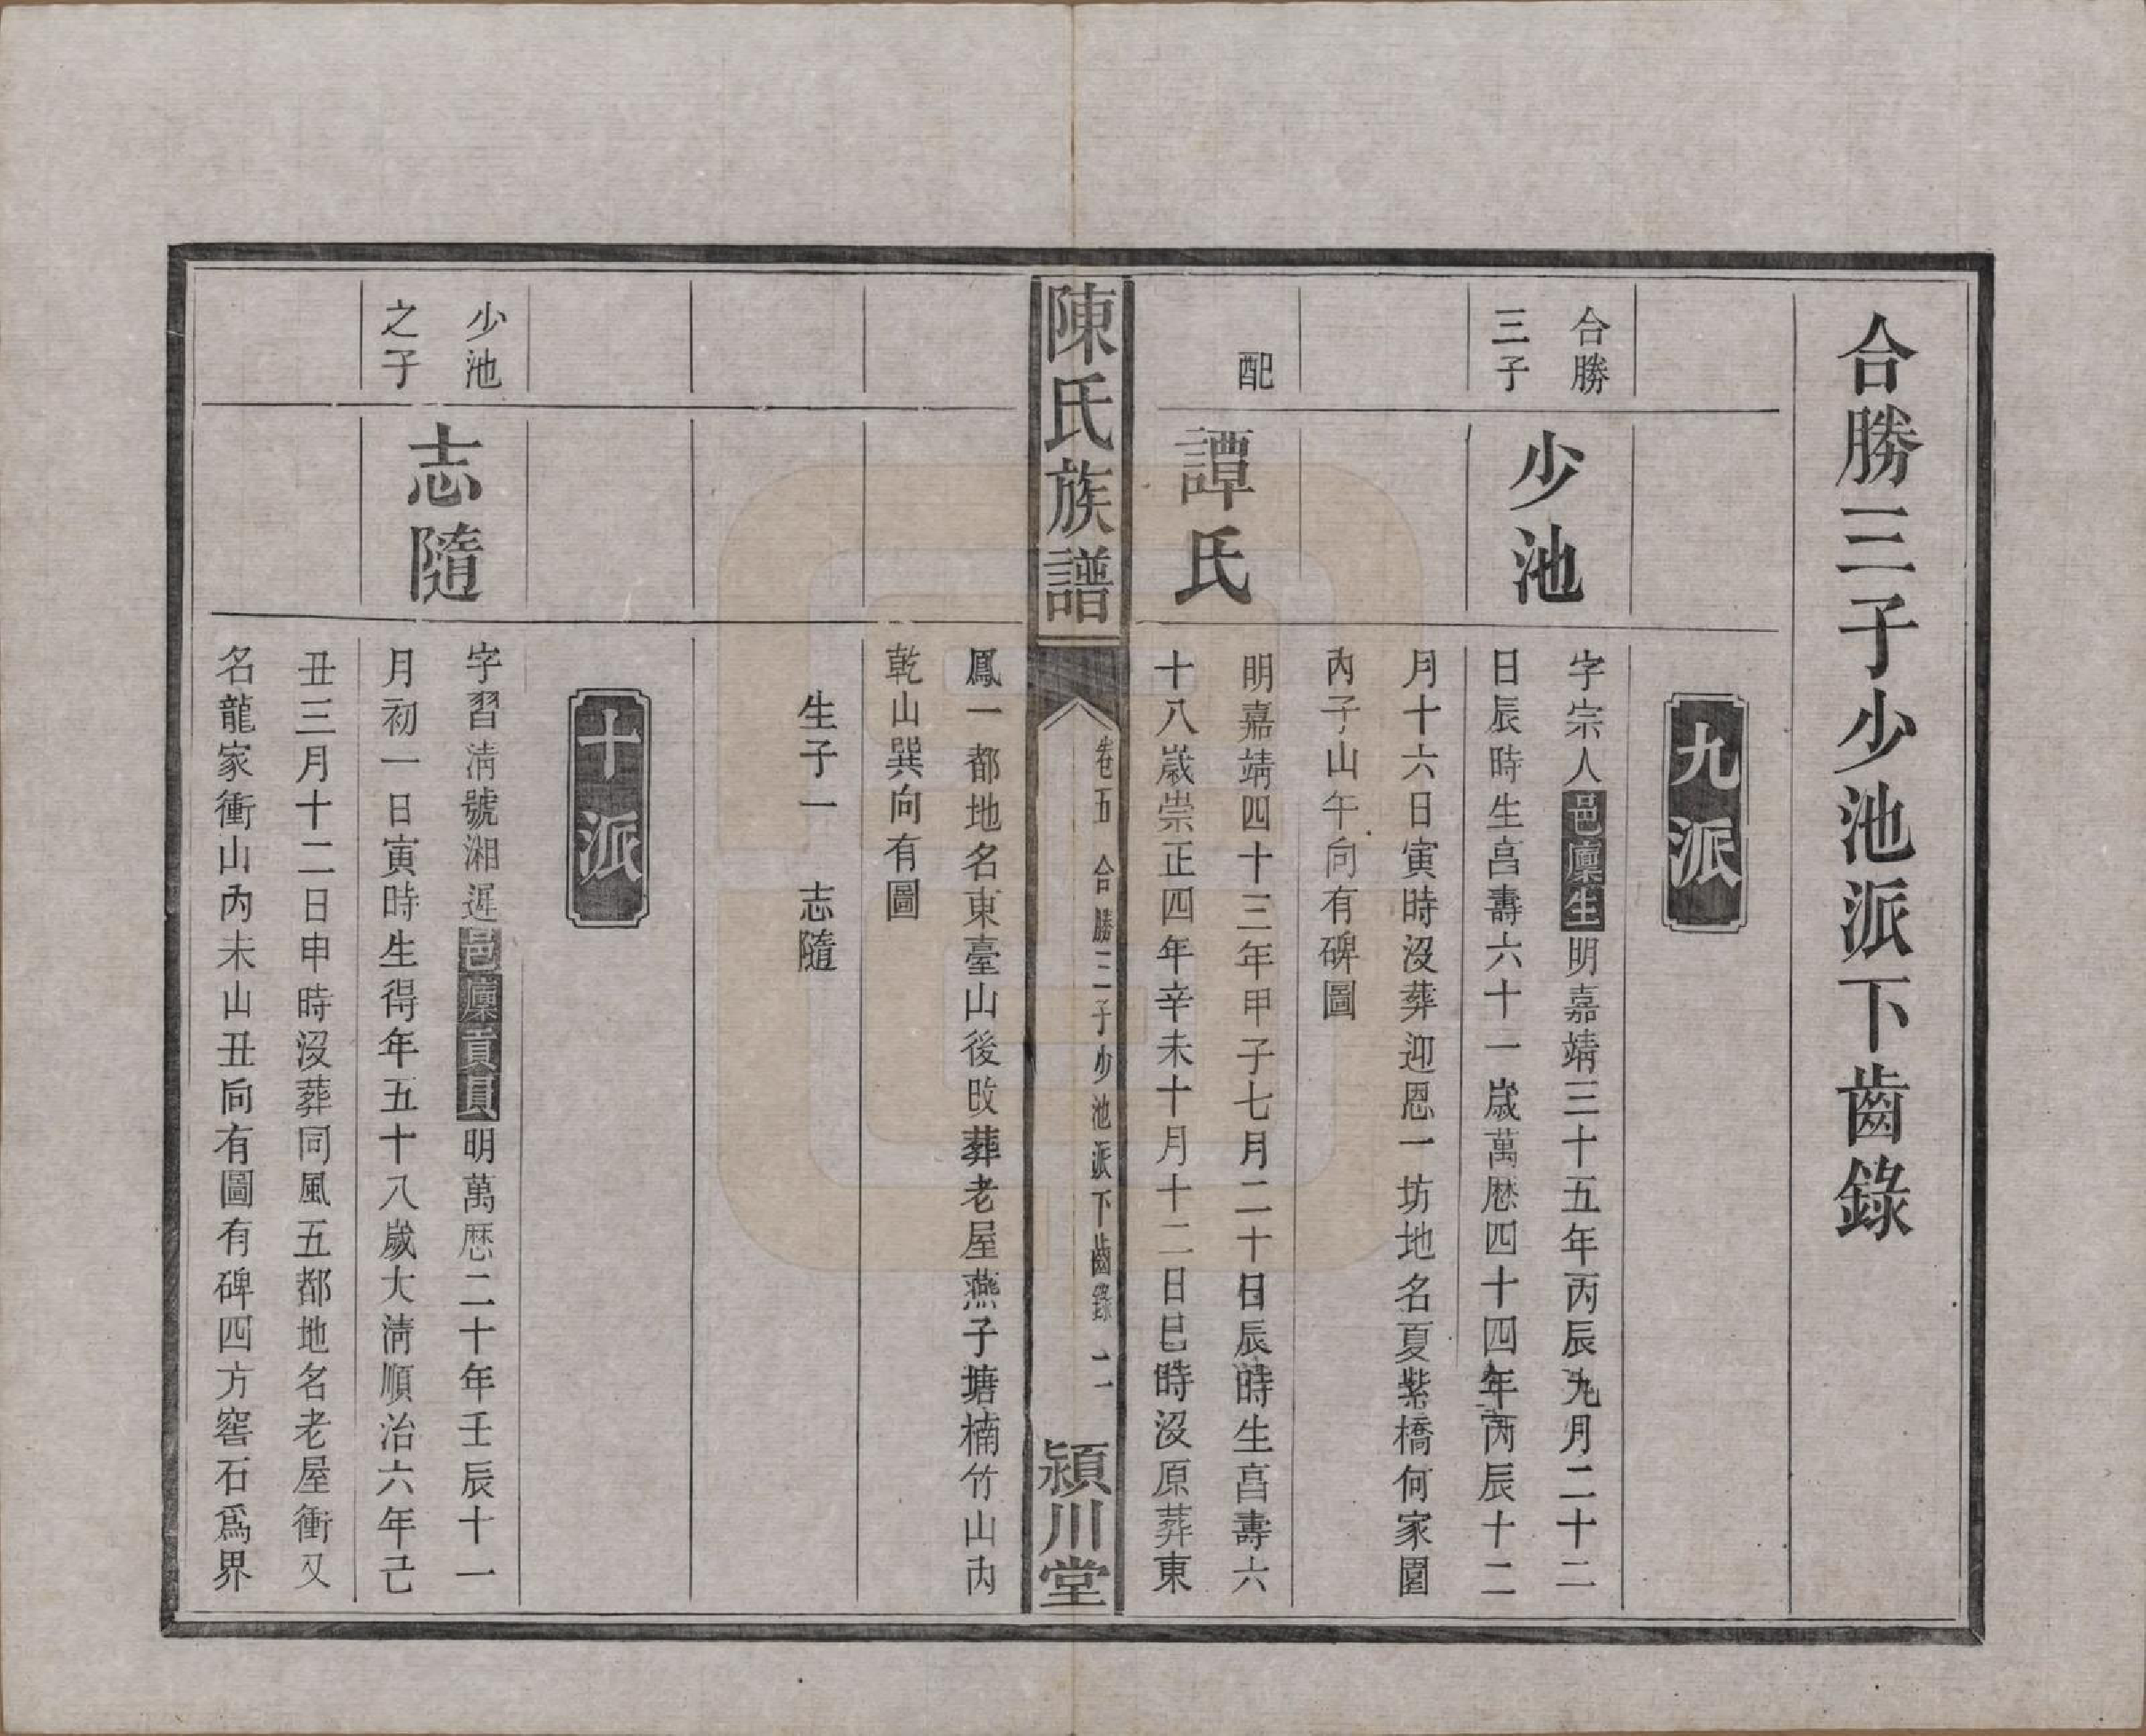 合勝三子少池派下齒錄
九派
合勝
三子
少池
字宗人邑廩生明嘉靖三十五年丙辰九月二十二
日辰時生亯壽六十一歲萬厯四十四年丙辰十二
月十六日寅時沒葬迎恩一坊地名夏紫橋何家園
內子山午向有碑圖
配
譚氏
明嘉靖四十三年甲子七月二十日辰時生亯壽六
十八歲崇正四年辛未十月十二日巳時沒原葬東
陳氏族譜
卷五 合勝三子少池派下齒錄 二
潁川堂
鳳一都地名東臺山後改葬老屋燕子塘楠竹山內
乾山巽向有圖
生子一 志隨
十派
少池
之子
志隨
字習清號湘遲邑廩貢員明萬厯二十年壬辰十一
月初一日寅時生得年五十八歲大清順治六年己
丑三月十二日申時沒葬同風五都地名老屋衝又
名龍家衝山內未山丑向有圖有碑四方窖石爲界